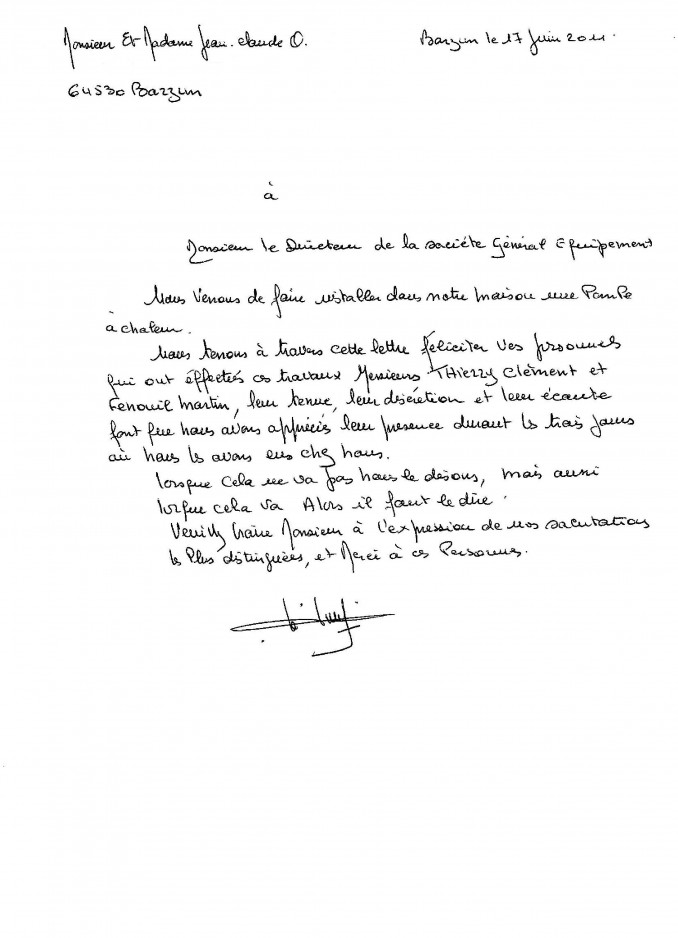 Monsieur Et Madame Jean-Claude O.
Barzun le 17 Juin 2011.
64530 Barzun
à
Monsieur le Directeur de la société Général Equipement
Nous Venons de faire installer dans notre maison une Pompe
à chaleur.
Nous tenons à travers cette lettre féliciter vos personnels
qui ont effectués ces travaux Messieurs THierry Clément et
Fenouil Martin, leur tenue, leur discrétion et leur écoute
font que nous avons appréciés leur presence durant les trois jours
où nous les avons eus chez nous.
lorsque cela ne va pas nous le disons, mais aussi
lorsque cela va Alors il faut le dire.
Veuillez croire Monsieur à l'expression de nos salutations
les Plus distinguées, et Merci à ces Personnes.